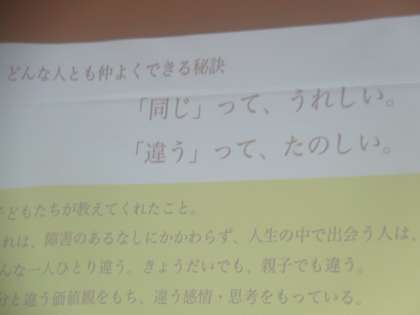 どんな人とも仲よくできる秘訣
「同じ」って、うれしい。
「違う」って、たのしい。
子どもたちが教えてくれたこと。
れは、障害のあるなしにかかわらず、人生の中で出会う人は、
んな一人ひとり違う。きょうだいでも、親子でも違う。
分と違う価値観をもち、違う感情・思考をもっている。